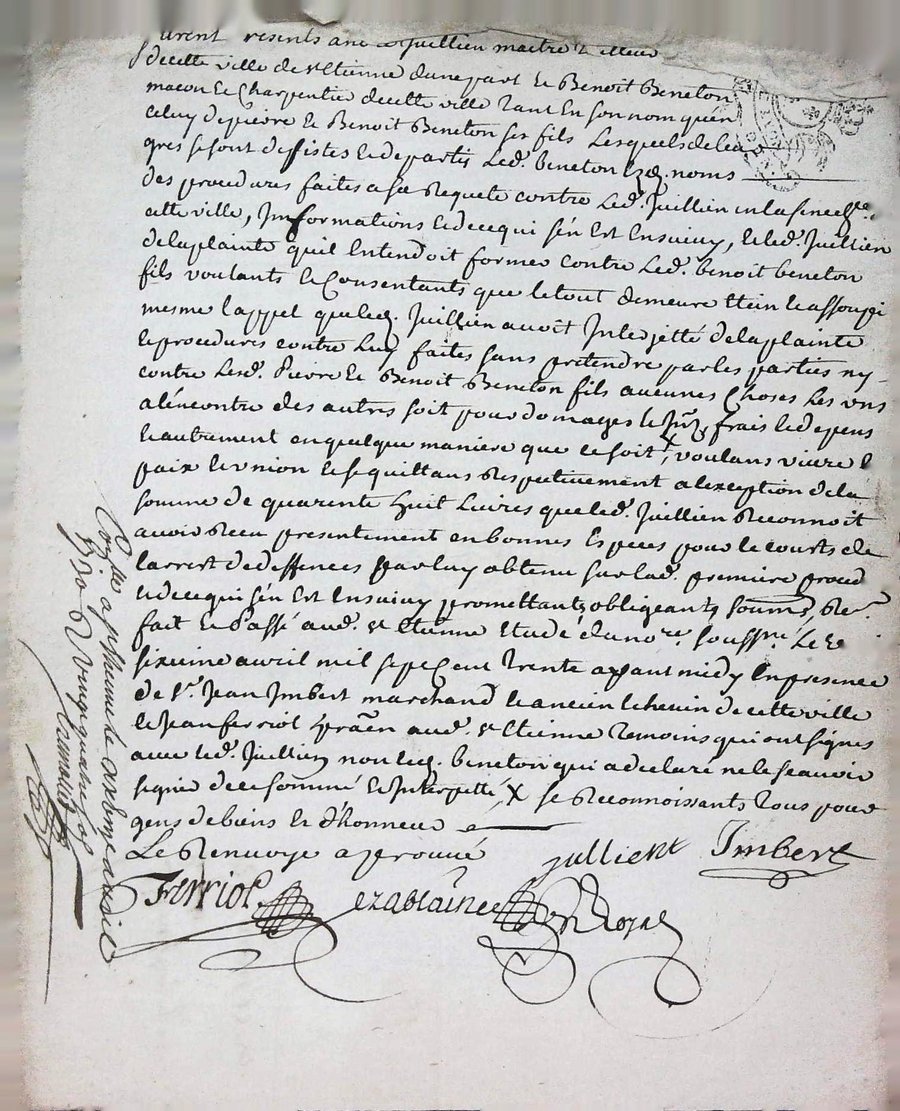 furent presents Juillien maitre
decette ville de st Etienne dune part Et Benoit Beneton
macon Et Charpentier decette ville tant En son nom quen
celuy depierre Et Benoit Beneton ses fils Lesquels de leu
gres se sont desistes Et departis Led. beneton Esd. noms
des procedures faites a sa Requete contre Led. Juillien en la senechee.
cette ville, Informations Et de ce qui sén Est Ensuivy, Et led. Juillien
de la plainte quil Entendoit former contre Led. benoit beneton
fils voulants Et Consentants que le tout demeure Etein Et assoupi
mesme lappel queled. Juillien avoit Interjetté delaplainte
Et procedures contre Luy faites sans pretendre par les parties ny
contre Lesd. Pierre Et Benoit Beneton fils aucunes Choses Les uns
alencontre des autres soit pour domages Et Jnts, frais Et depens
Et autrement en quelque maniere que ce soit, X voulans vivre E
paix Et union Et se quittans Respectivement alexception dela
somme de quarente huit Livres queled. Juillien Reconnoit
avoir Receu presentement en bonnes Especes pour le couts de
larrest de deffences par luy obtenu sur lad. premiere proced
Et de ce qui sén Est Ensuivy promettants obligeants soums, Re
fait Et Passé aud. st Etienne Etude du nore. soussne. Le
sixieme avril mil sept Cent trente avant midy En presence
de Sr. Jean Imbert marchand Et ancien Echevin de cette ville
Et Jean ferriol praen aud. st Etienne temoins qui ont signes
avec led. Juillien non led. beneton qui a declaré ne le scavoir
signer de ce sommé Et Interpellé X se Reconnoissants tous pour
gens de biens Et d'honneur
Le Renvoye aprouvé
jullient Imbert
Ferriol Ezablaine